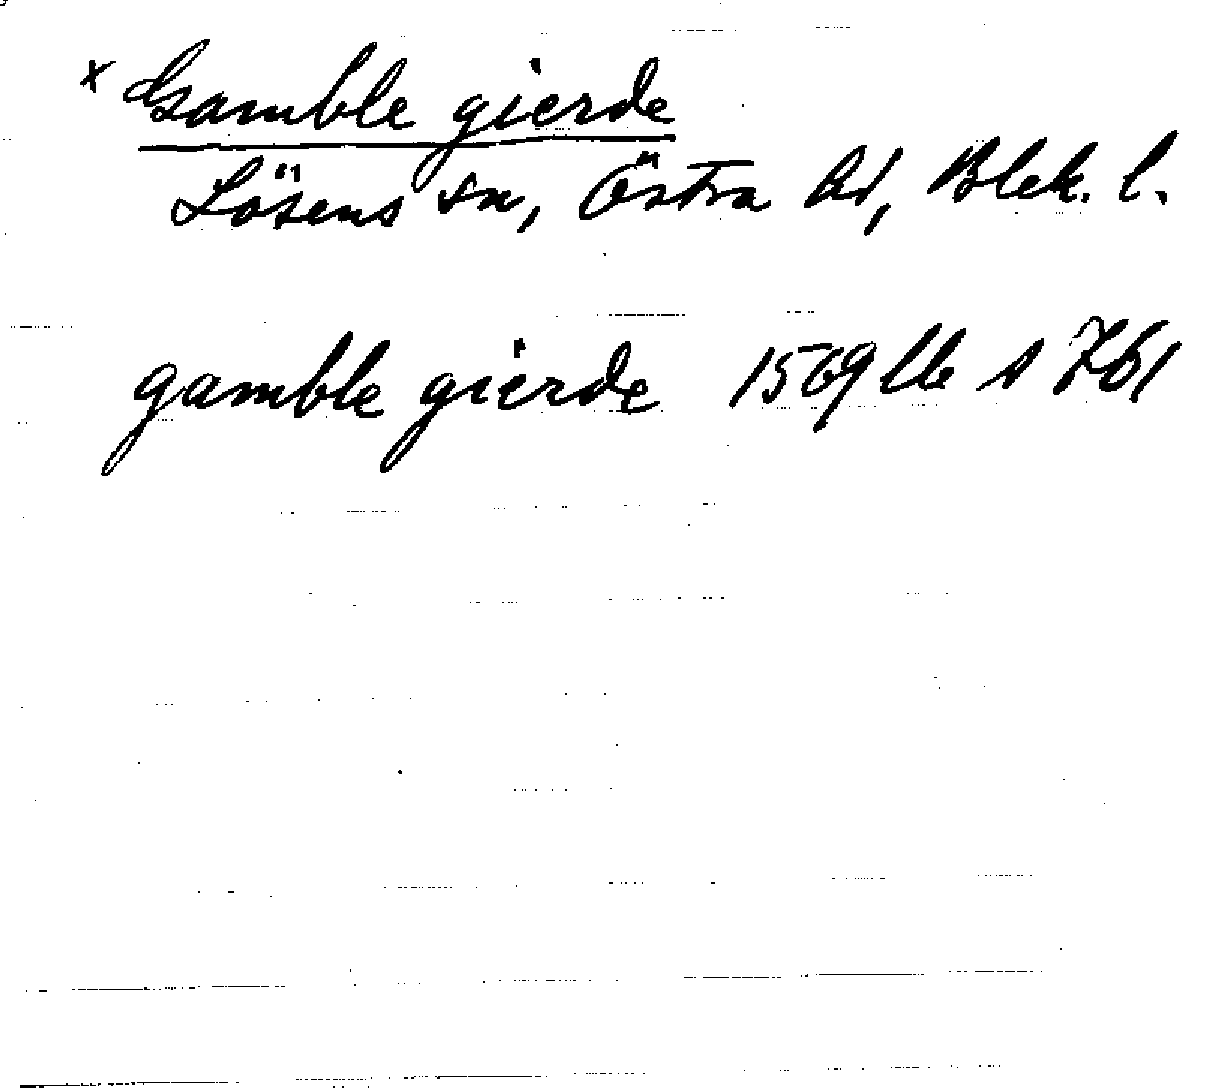 x Gamble gierde
Lösens sn, Östra hd, Blek. l.
gamble gierde 1569 Lb s 761